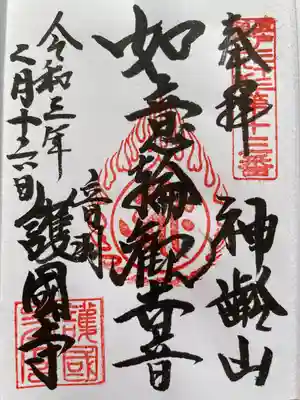 奉拝
第十三番
神齢山
如意輪観世音
音羽
護國寺
令和三年
月十六日